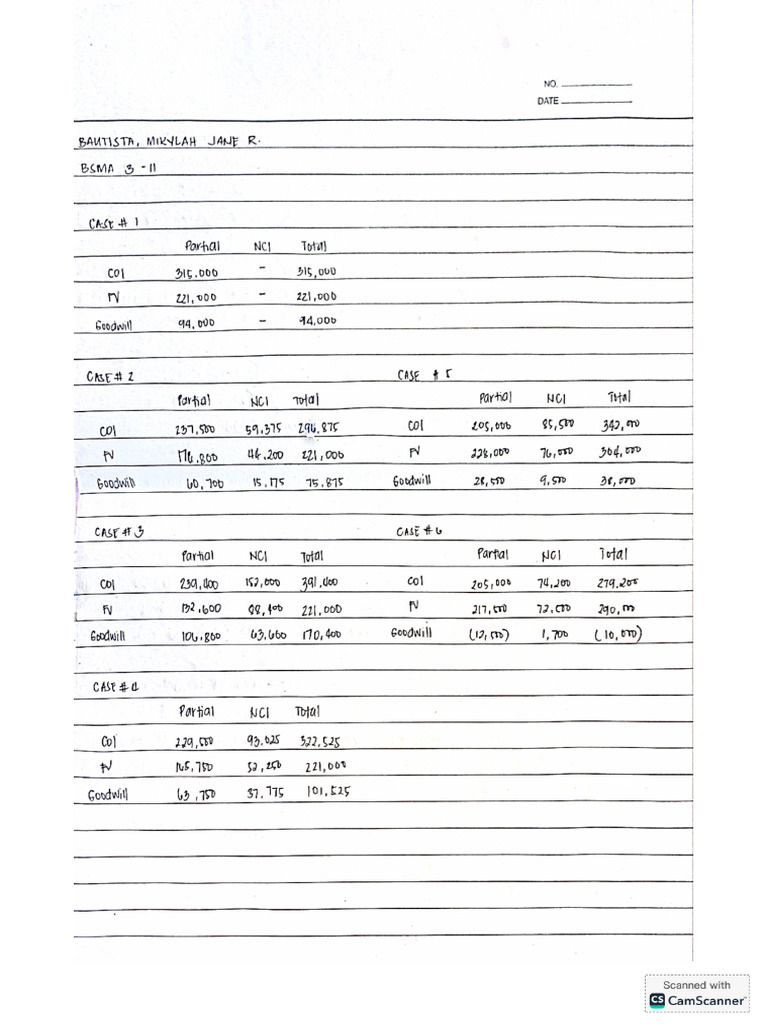 NO.
DATE
BAUTISTA, MIKYLAH JANE R.
BSMA 3 - 11
CASE # 1
Partial NCI Total
COI 315,000 - 315,000
FV 221,000 - 221,000
Goodwill 94,000 - 94,000
CASE # 2
Partial NCI Total
COI 237,500 59,375 296,875
FV 176,800 44,200 221,000
Goodwill 60,700 15,175 75,875
CASE # 5
Partial NCI Total
COI 205,000 85,500 342,000
FV 228,000 76,000 304,000
Goodwill 28,500 9,500 38,000
CASE # 3
Partial NCI Total
COI 239,400 152,000 391,400
FV 132,600 88,400 221,000
Goodwill 106,800 63,600 170,400
CASE # 6
Partial NCI Total
COI 205,000 74,200 279,200
FV 217,500 72,500 290,000
Goodwill (12,500) 1,700 (10,000)
CASE # 4
Partial NCI Total
COI 229,500 93,025 322,525
FV 165,750 52,250 221,000
Goodwill 63,750 37,775 101,525
Scanned with
CS CamScanner